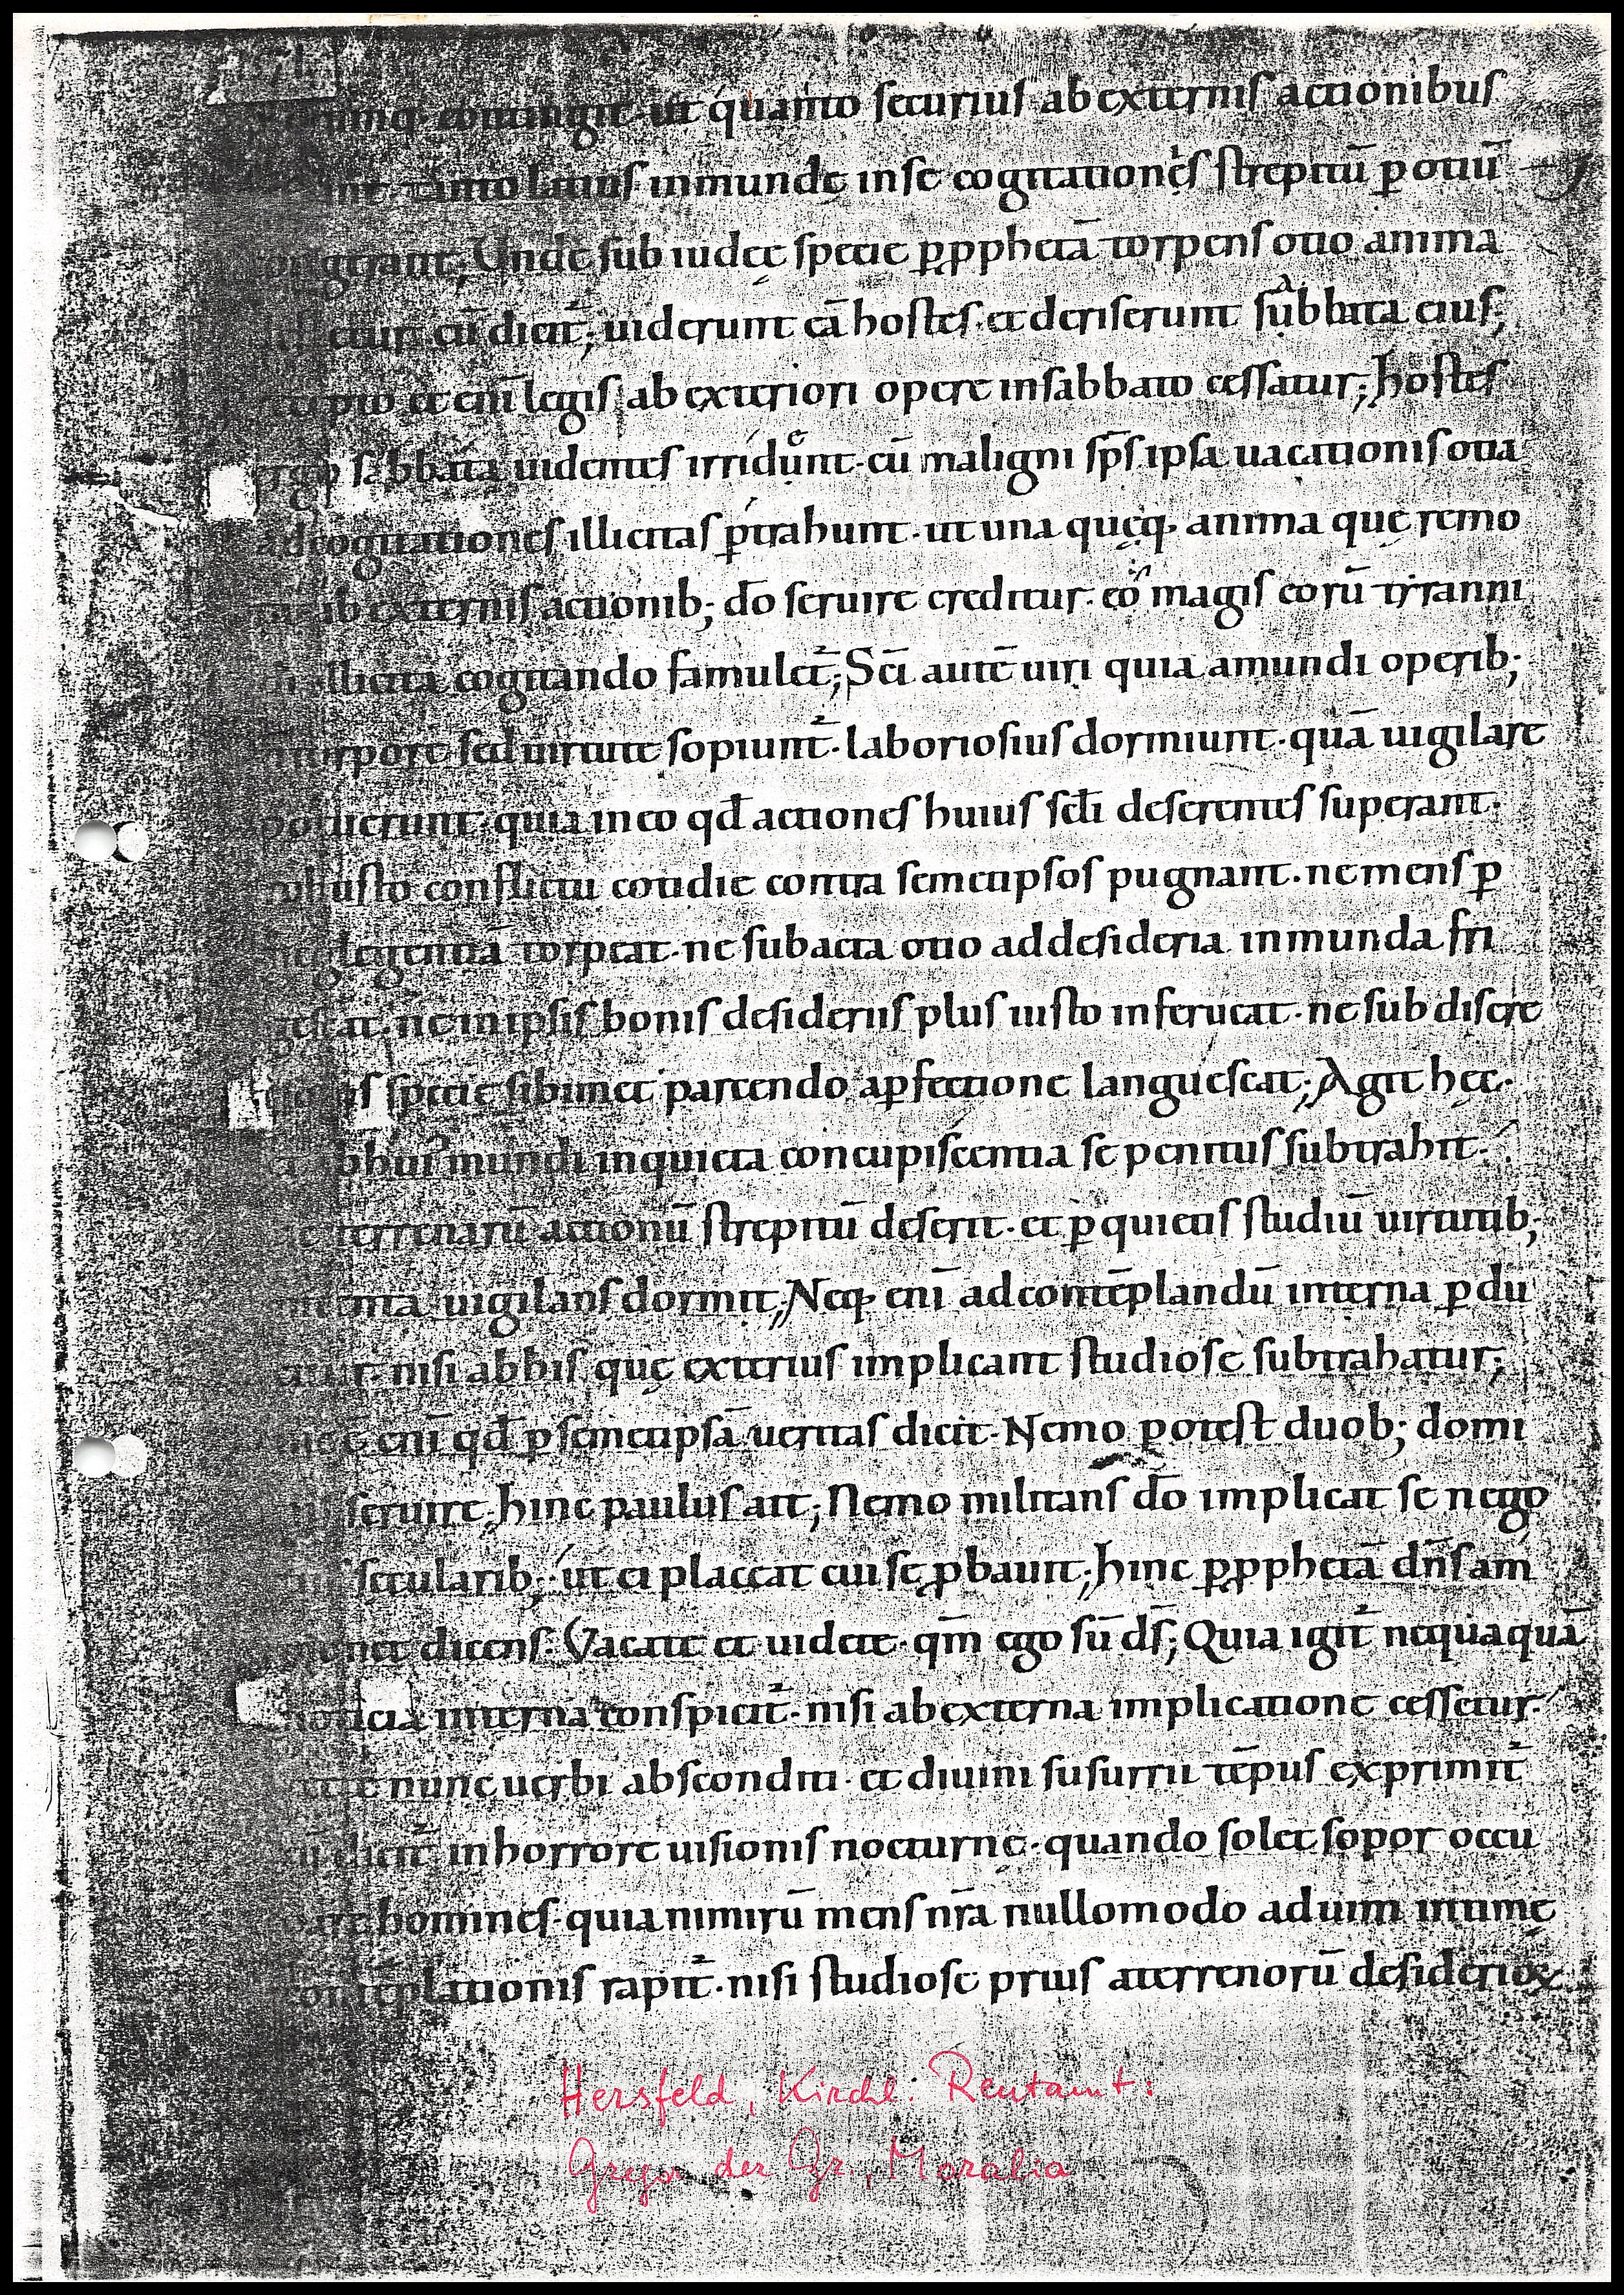 contingit· ut quanto securius ab externis actionibus
tanto latius inmundę in se cogitationes strepitū p̱ otiū
congerant; Unde sub iudęę specie p̱ p̱phetā torpens otio anima
cū dicit᷑; uiderunt eā hostes· et deriserunt sabbata eius;
et eni᷑ legis ab exteriori opere in sabbato cessatur; hostes
sabbata uidentes irrident· cū maligni sp̄s ipsa uacationis otia
ad cogitationes illicitas p̱trahunt· ut una quęq· anima quę remo
ab externis actionib; dō seruire creditur· eo magis eorū tyranni
illicita cogitando famulet᷑; Sc̄i autē uiri quia a mundi operib;
torpore sed uirtute sopiunt᷑· laboriosius dormiunt· quā uigilare
potuerunt· quia in eo qd̄ actiones huius scl̄i deserentes superant·
robusto conflictu cotidie contra semetipsos pugnant· ne mens p̱
neglegentiā torpeat· ne subacta otio ad desideria inmunda fri
gescat· ne in ipsis bonis desideriis plus iusto inferueat· ne sub discre
specie sibimet parcendo a p̱fectione languescat; Agit hęc·
ab hui᷒ mundi inquieta concupiscentia se penitus subtrahit·
ac terrenarū actionū strepitū deserit· et p̱ quietis studiū uirtutib;
intenta uigilans dormit; Neq· enī ad contēplandū interna p̱du
citur· nisi ab his quę exterius implicant studiose subtrahatur;
enī qd̄ p̱ semetipsā ueritas dicit· Nemo potest duob; domi
nis seruire· hinc paulus ait; Nemo militans dō implicat se nego
secularib; ut ei placeat cui se p̱bauit; hinc p̱ p̱phetā dn̄s am
monet dicens· Vacate et uidete· qm̄ ego sū ds̄; Quia igit᷑ nequaquā
noticia interna conspicit᷑· nisi ab externa implicatione cessetur·
nunc uerbi absconditi· et diuini susurrii tēpus exprimit᷑
cū dicit᷑ in horrore uisionis nocturnę· quando solet sopor occu
pare homines· quia nimirū mens nr̄a nullomodo ad uim intimę
contēplationis rapit᷑· nisi studiose prius a terrenorū desiderioꝝ
Hersfeld, Kirchl. Rentamt:
Gregor der Gr., Moralia